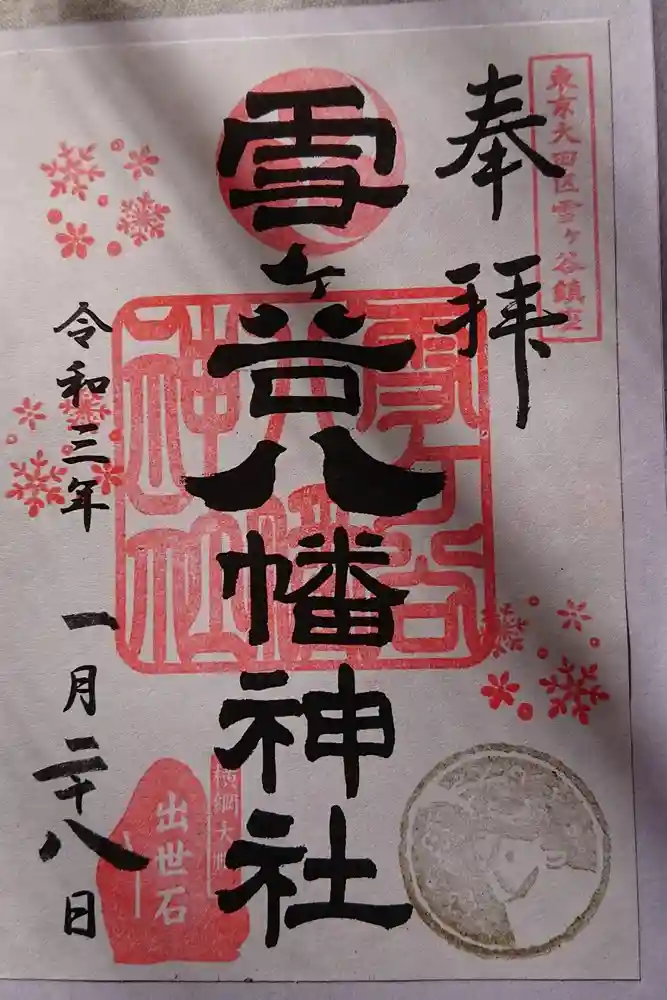 東京大田区雪ヶ谷鎮座
奉拝
雪ヶ谷八幡神社
雪ヶ谷八幡神社
令和三年 一月二十八日
出世石